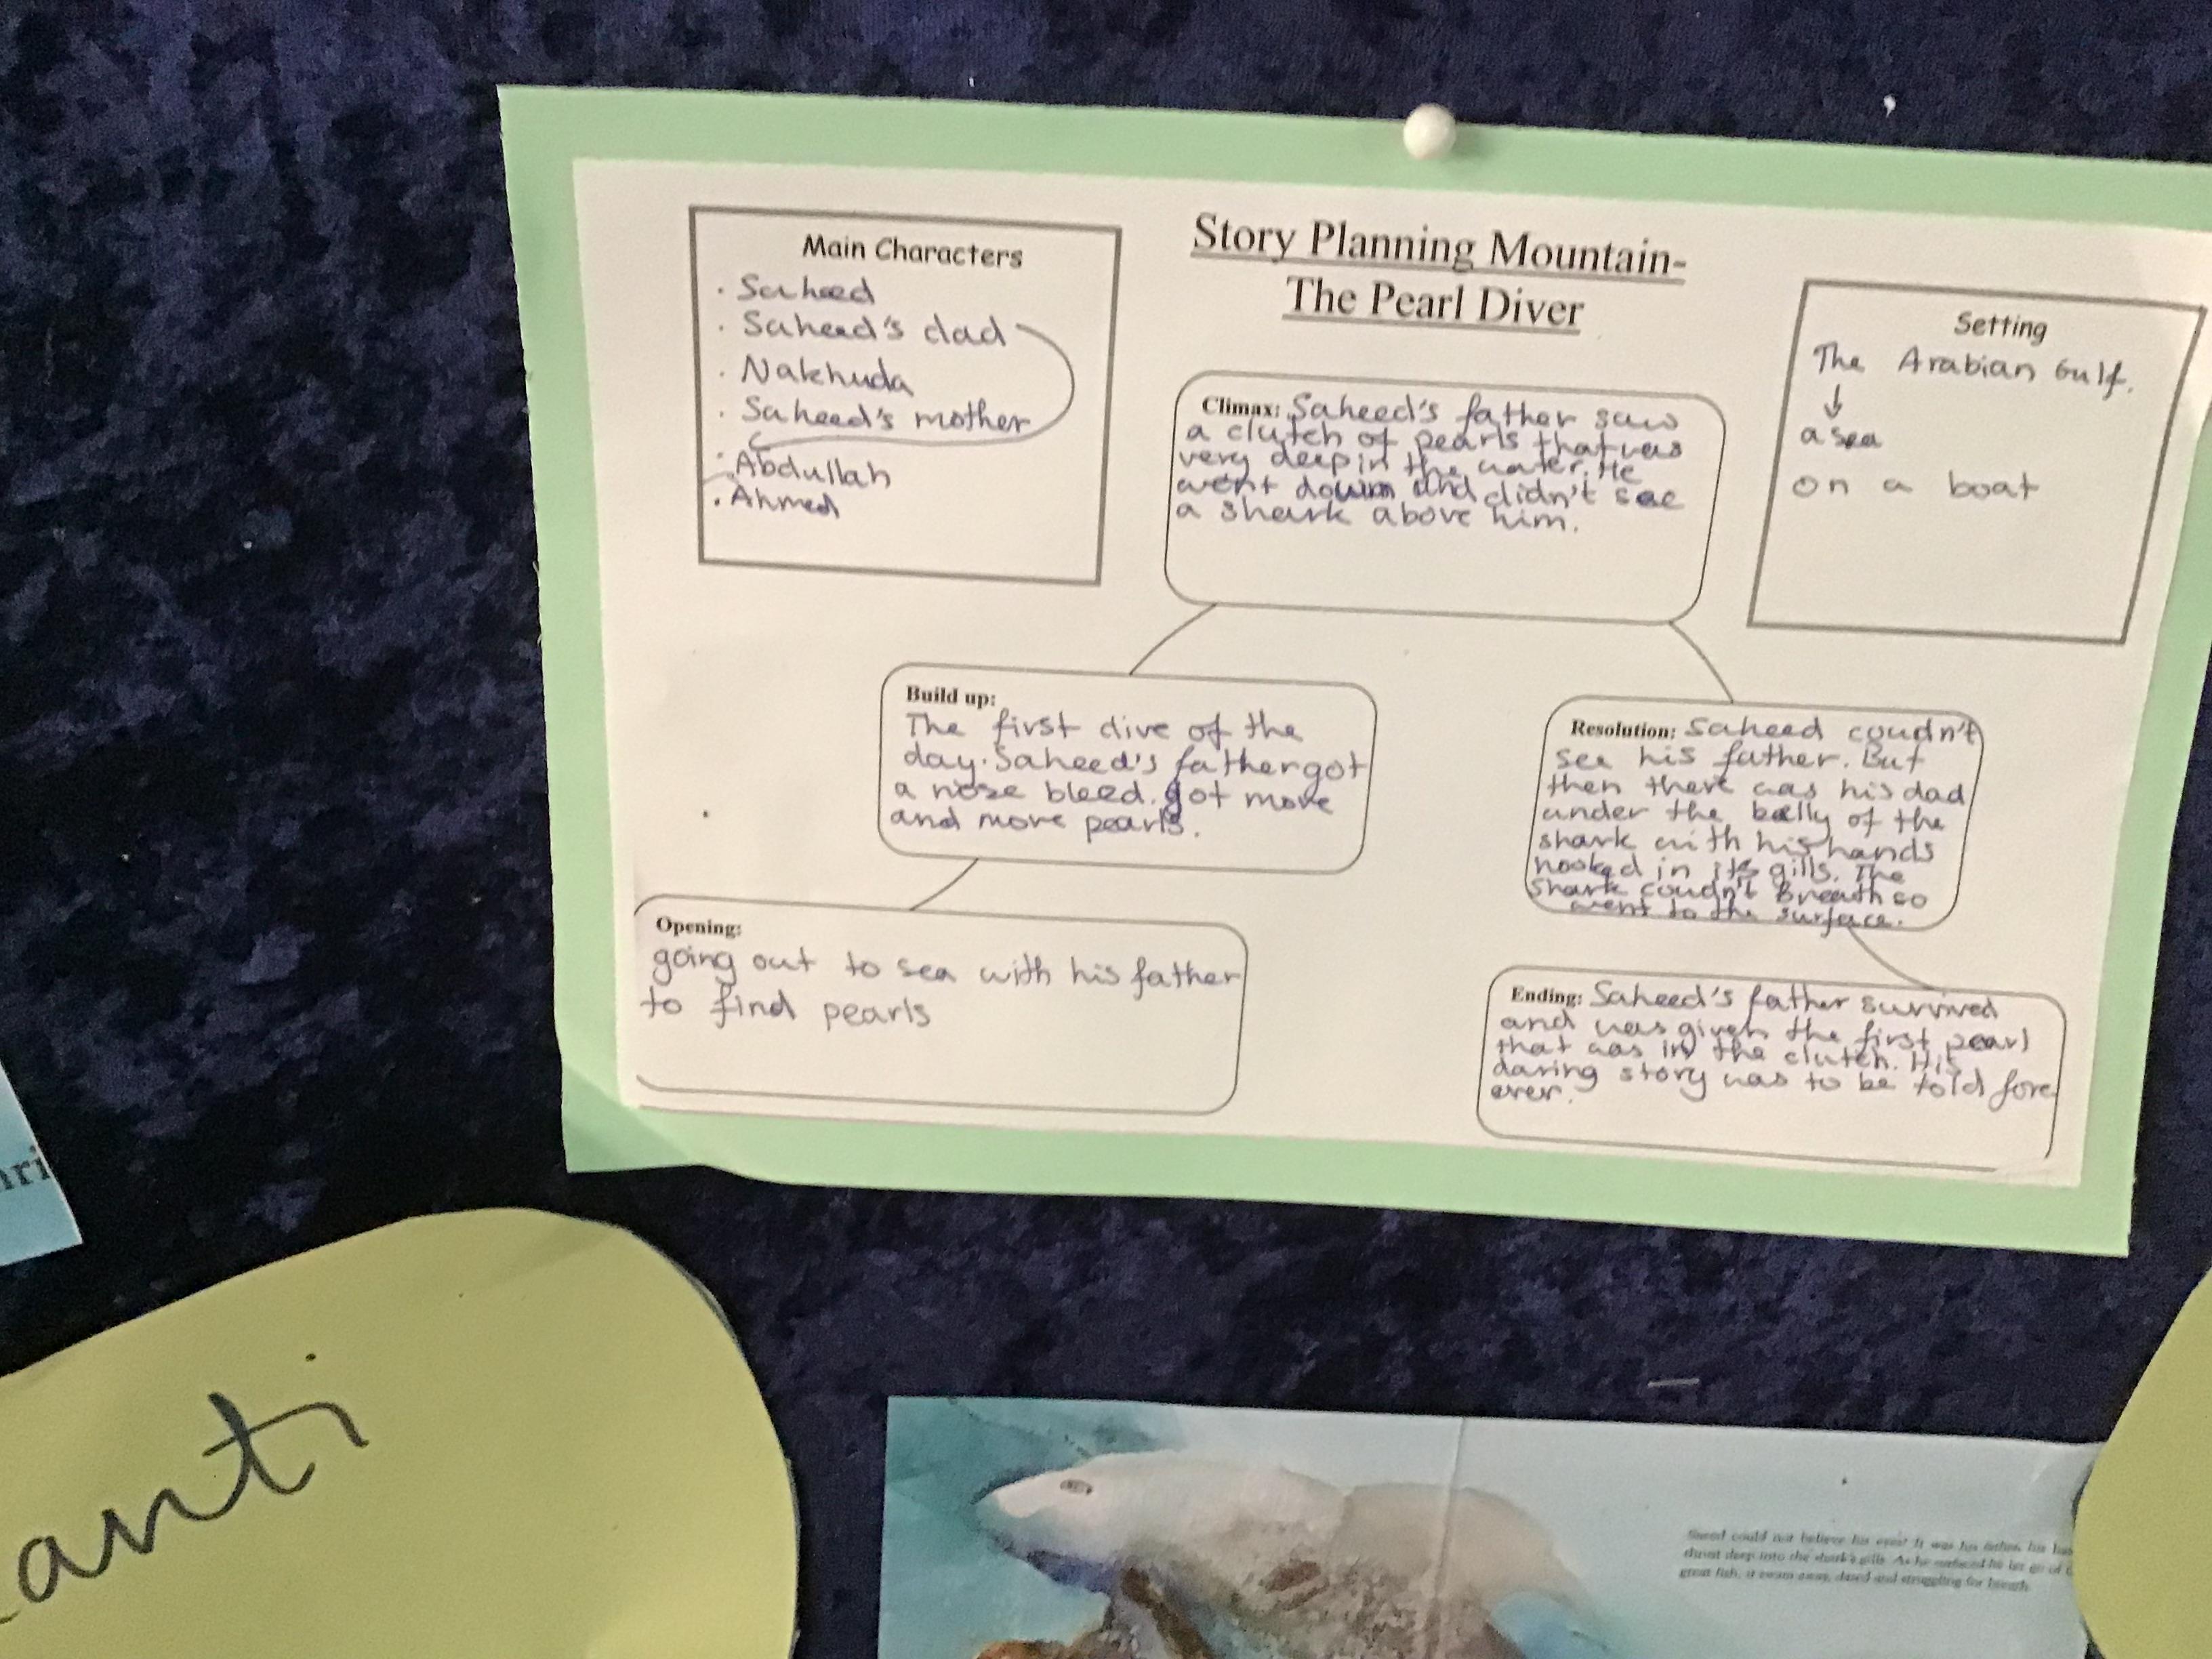 Story Planning Mountain-
The Pearl Diver
Main Characters
· Saheed
· Saheed's dad
· Nakhuda
· Saheed's mother
· Abdullah
· Ahmed
Setting
The Arabian Gulf.
↓
a sea
on a boat
Climax: Saheed's father saw
a clutch of pearls that was
very deep in the water. He
went down and didn't see
a shark above him.
Build up:
The first dive of the
day. Saheed's father got
a nose bleed. got more
and more pearls.
Resolution: Saheed coudn't
see his father. But
then there was his dad
under the belly of the
shark with his hands
hooked in its gills. The
Shark coudn't Breath so
went to the surface.
Opening:
going out to sea with his father
to find pearls
Ending: Saheed's father survived
and was given the first pearl
that was in the clutch. His
daring story was to be told fore
ever.
anti
Saeed could not believe his eyes! It was his father, his
thrust deep into the shark's gills. As he surfaced he let go of
great fish, it swam away, dazed and struggling for breath.